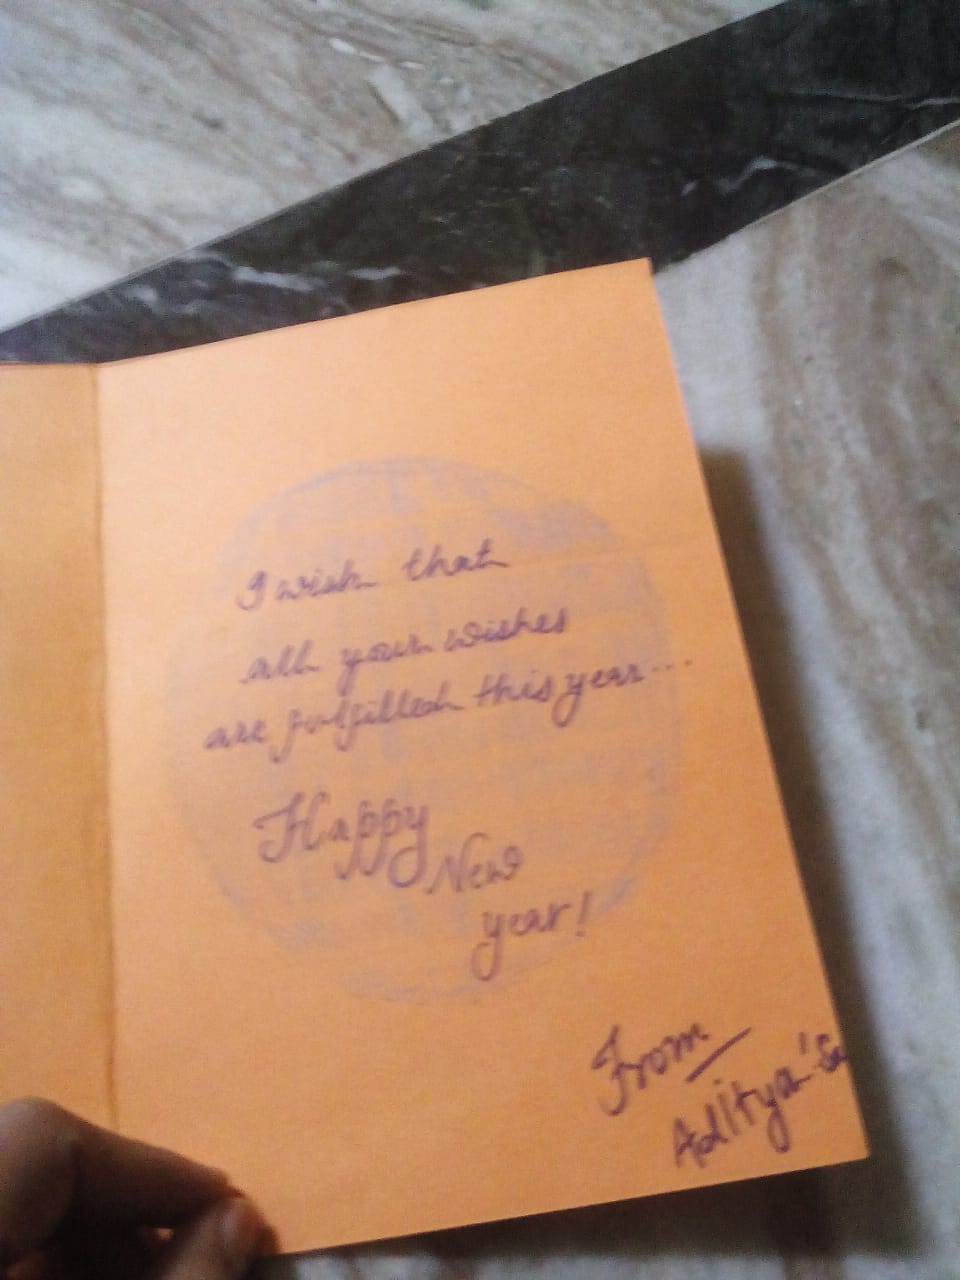 I wish that
all your wishes
are fulfilled this year...
Happy
New
year!
From
Aditya's